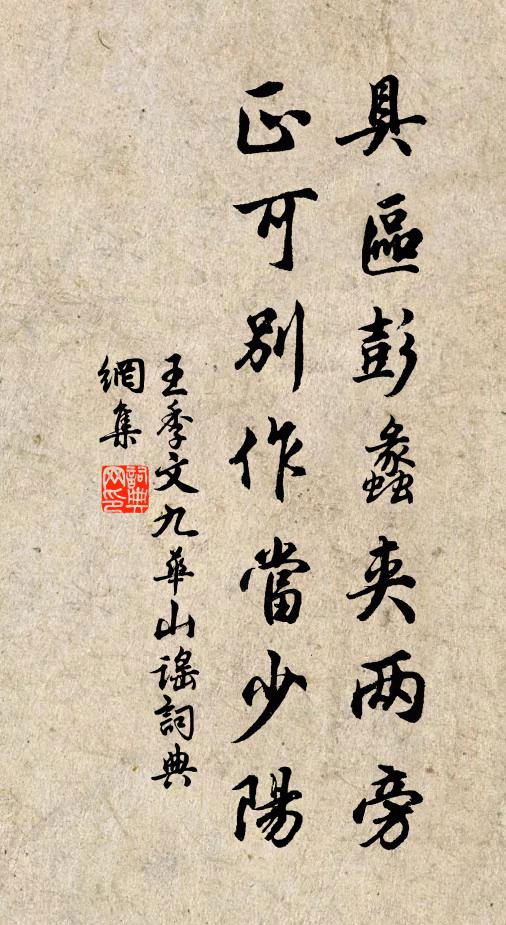 具區彭蠡夾两旁
正可別作當少陽
王季文九華山謠詞典
網集
詞典
网印